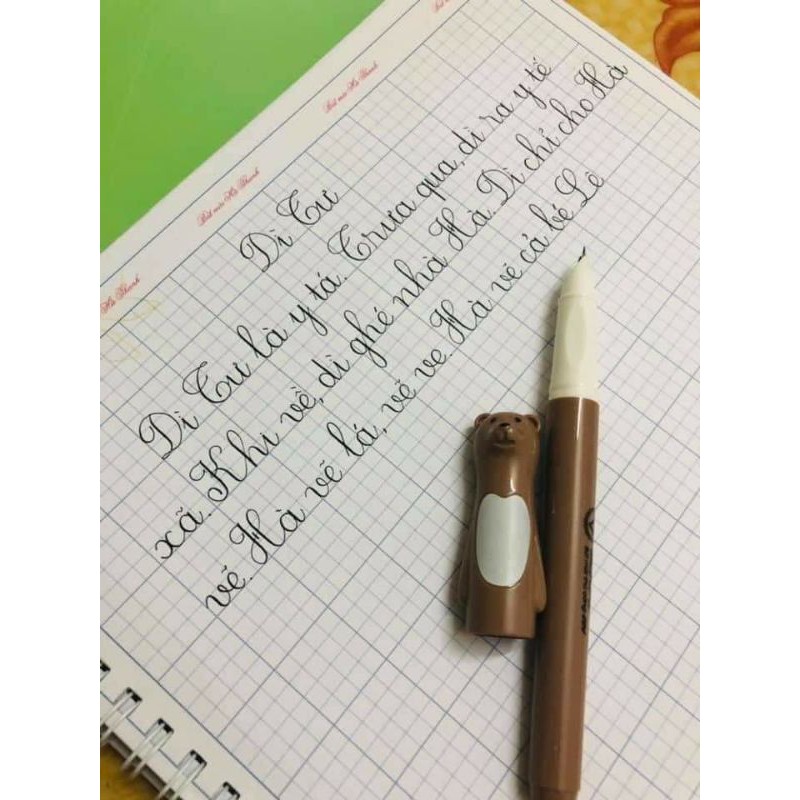 Bút mài Hà Thanh
Bút mài Hà Thanh
Hà Thanh
Dì Tư
Dì Tư là y tá. Trưa qua, dì ra y tế
xã. Khi về, dì ghé nhà Hà. Dì chỉ cho Hà
vẽ. Hà vẽ lá, vẽ ve. Hà vẽ cả bé Lê